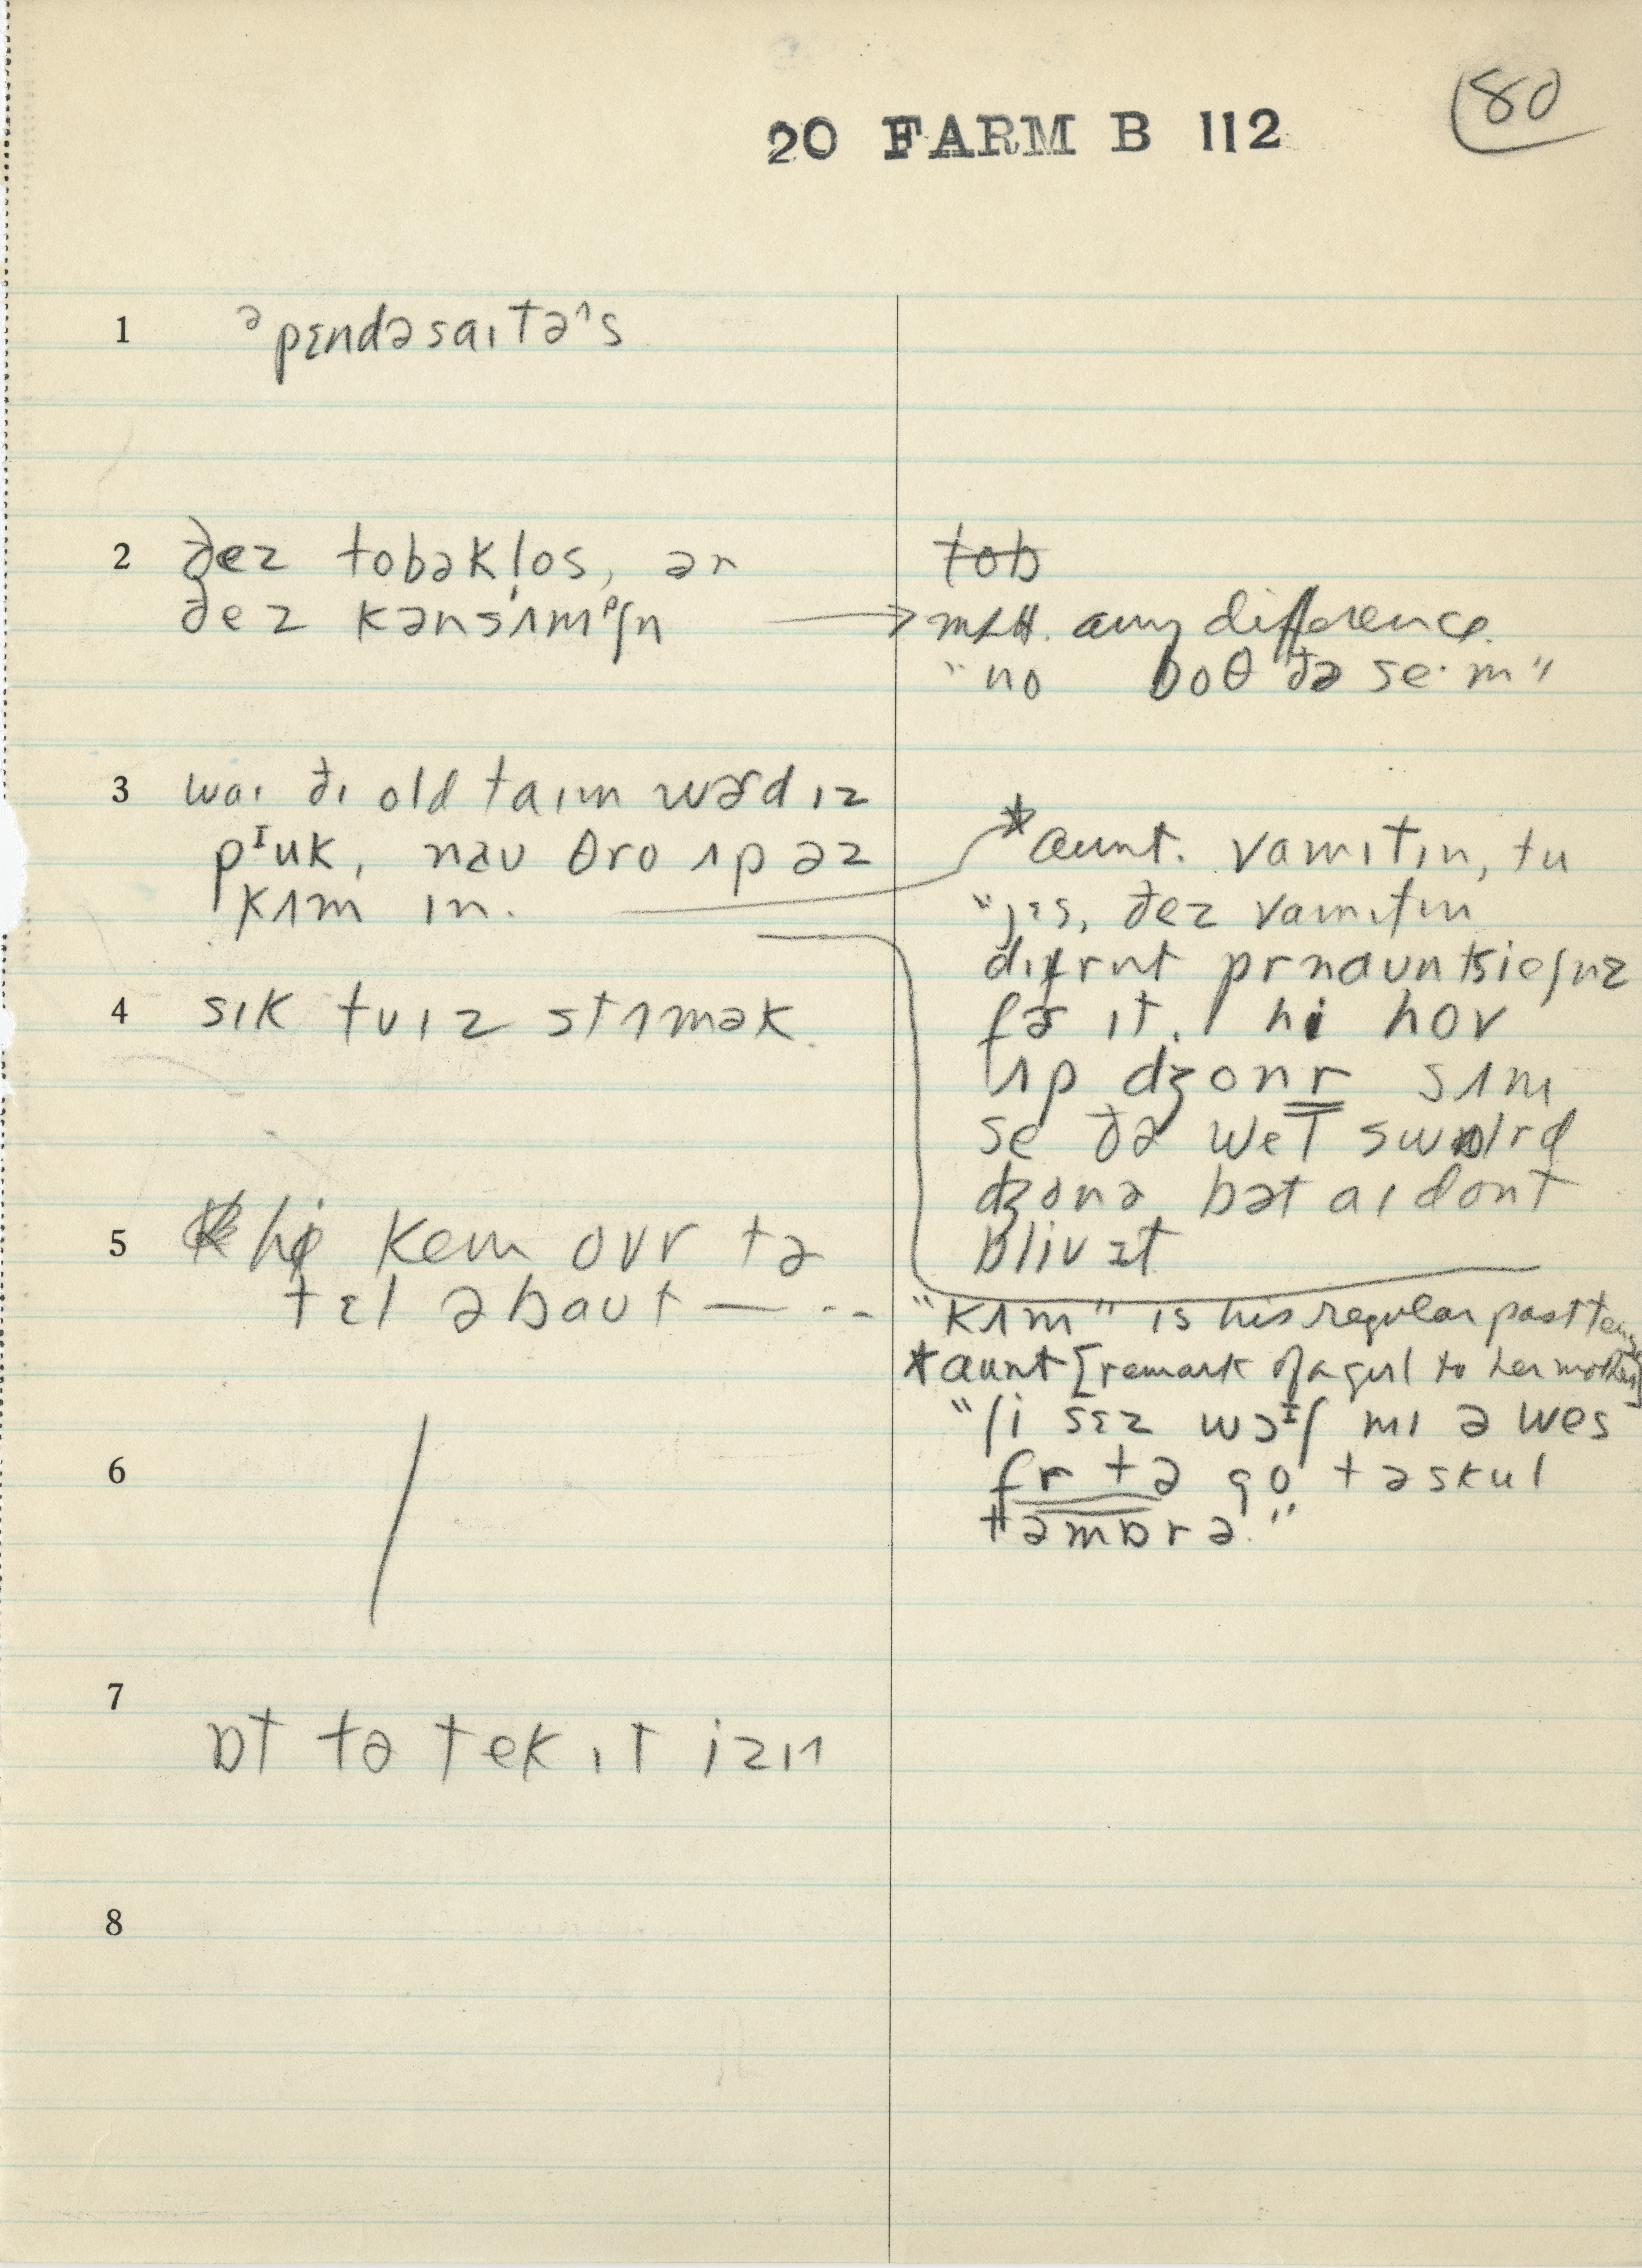 80
20 FARM B 112
1 ᵊpɛndəsaɪtəˈs
2 ðez tobəkl̩os, ər
ðez kənsʌmᵖʃn
tob
any difference.
"no boθ ðə se·m"
3 waɪ ðɪ old taɪm wɚd ɪz
pᴵuk, nau θro ʌp əz
kʌm ɪn.
*aunt. vamɪtɪn, tu
"jɛs, ðez vamɪtɪn
dɪfrnt
fɚ ɪt. hi hov
ʌp dʒonr sʌm
se ðə wet
dʒonə bət aɪ dont
bliv ɪt
4 sɪk tu ɪz stʌmək.
5 hi kem ovr tə
tɛl əbaut — - -
"kʌm" is his regular past tense
*aunt [remark of a girl to her mother]
"ʃi sɛz wɔᴵʃ mɪ ə wes
fr tə go tə skul
təmɒrə."
6
7 ɒt tə tek ɪt izɪ
8